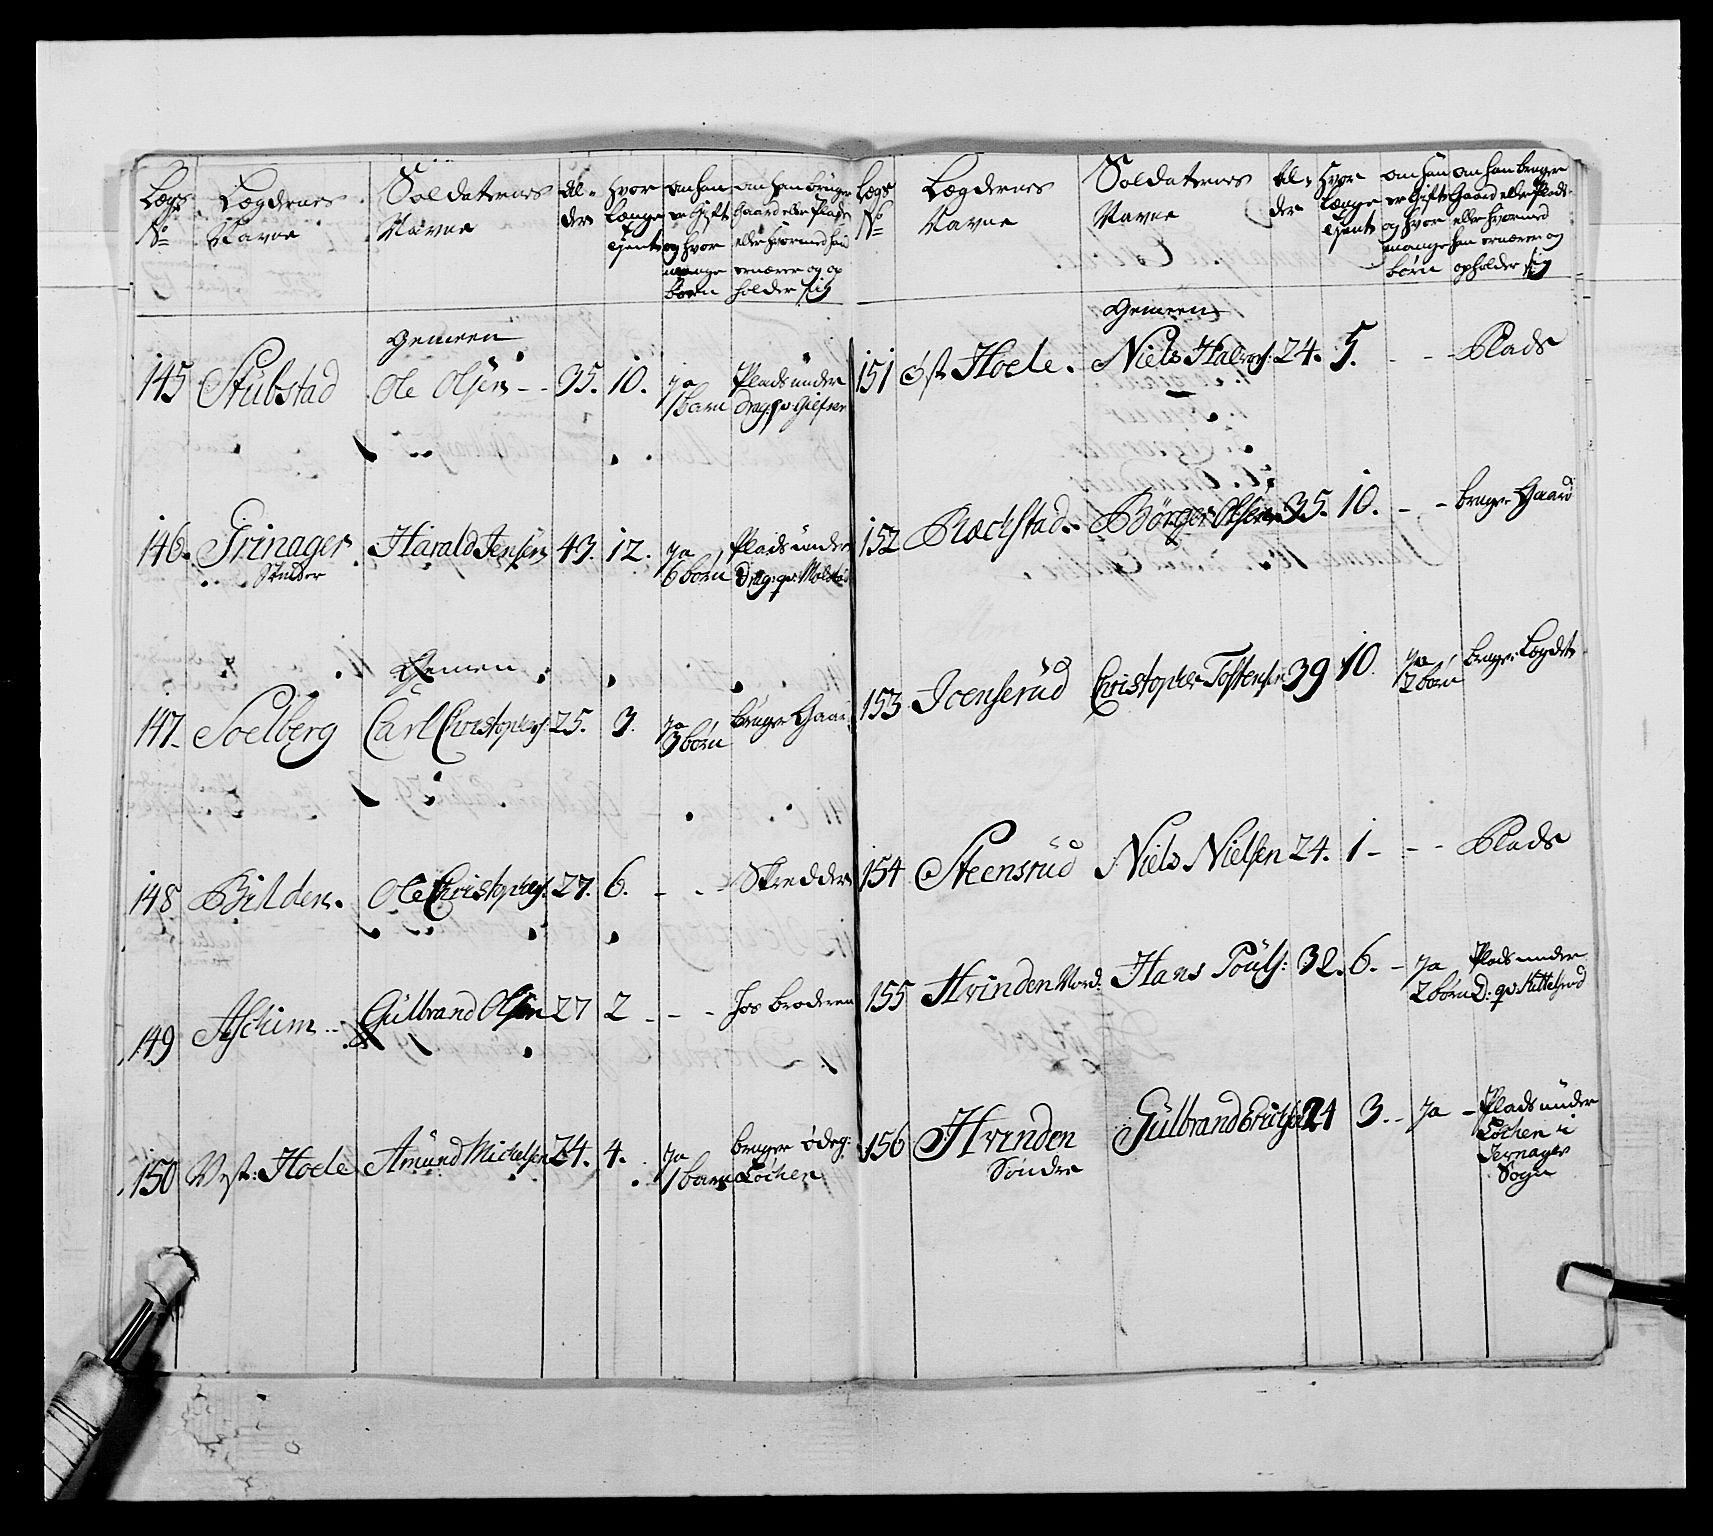 Lægs No | Lægdernes Navne | Soldaternes Navne | Al-der | Hvor længe tjent | om han er Gift og hvor mange børn | om han bruger Gaard eller Plads eller hvormed han ernærer og opholder sig
Gemeen
145 Stubstad Ole Olsen -- 35. 10. Ja 1 barn Plads under
146. Grinager Stutter Harald Jensen 43. 12. Ja 6 børn Plads under
Gemeen
147. Soelberg Carl Christophers: 25. 3. Ja 3 børn bruger Gaar
148 Bilden. Ole Christophers: 27. 6. - - - Skredder
149 Aschim -- Gulbrand Olsen 27 2 - - - hos broderen
150 Vest: Hoele Amund Michelsen 24. 4. Ja 1 barn bruger ødeg: Løchen
Lægs No | Lægdernes Navne | Soldaternes Navne | Al-der | Hvor længe tjent | om han er Gift og hvor mange børn | om han bruger Gaard eller Plads eller hvormed han ernærer og opholder sig
Gemeen
151 Øst Hoele. Niels Halvors: 24. 5. - - - Plads
152 Rachstad. Børger Olsen 35. 10. - - bruger Gaard
153 Joenserud Christopher Tostensen 39 10. Ja 2 børn bruger Lægdet
154 Steensrud Niels Nielsen 24. 1 - - - Plads
155 Hvinden Nord: Hans Pouls: 32. 6. - Ja 2 børn Plads under
156 Hvinden Søndre Gulbrand Erichsen 24 3. - Ja - Plads under Løchen i Jevnager Sogn